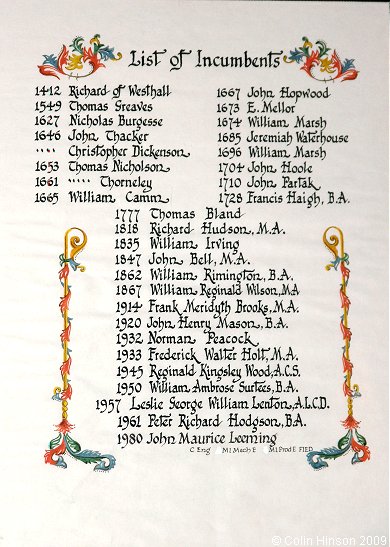 List of Incumbents
1412 Richard of Westhall
1549 Thomas Greaves
1627 Nicholas Burgesse
1646 John Thacker
" " " " Christopher Dickenson
1653 Thomas Nicholson
1661 " " " " " Thorneley
1665 William Camm
1667 John Hopwood
1673 E. Mellor
1674 William Marsh
1685 Jeremiah Waterhouse
1696 William Marsh
1704 John Hoole
1710 John Partak
1728 Francis Haigh, B.A.
1777 Thomas Bland
1818 Richard Hudson, M.A.
1835 William Irving
1847 John Bell, M.A.
1862 William Rimington, B.A.
1867 William Reginald Wilson, MA
1914 Frank Meridyth Brooks, M.A.
1920 John Henry Mason, B.A.
1932 Norman Peacock
1933 Frederick Walter Holt, M.A.
1945 Reginald Kingsley Wood, A.C.S.
1950 William Ambrose Surtees, B.A.
1957 Leslie George William Lenton, A.L.C.D.
1961 Peter Richard Hodgson, B.A.
1980 John Maurice Leeming
C Eng MI Mech E MI Prod E FIED
© Colin Hinson 2009